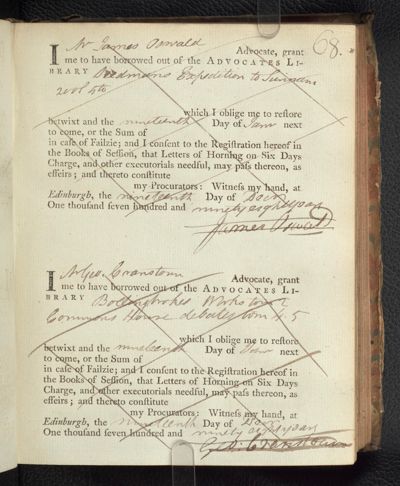 68.
I Mr James Oswald Advocate, grant
me to have borrowed out of the ADVOCATES LI-
BRARY Stedmans Expedition to Surinam
2 vol 4to
which I oblige me to reſtore
betwixt and the nineteenth Day of Janr next
to come, or the Sum of
in caſe of Failzie; and I conſent to the Regiſtration hereof in
the Books of Seſſion, that Letters of Horning on Six Days
Charge, and other executorials needful, may paſs thereon, as
effeirs; and thereto conſtitute
my Procurators: Witneſs my hand, at
Edinburgh, the nineteenth Day of Decr
One thouſand ſeven hundred and ninety eight years
James Oswald
I Mr Geo. Cranstoun Advocate, grant
me to have borrowed out of the ADVOCATES LI-
BRARY Bolingbrokes Works tom 2
Commons House debates tom 4. 5
which I oblige me to reſtore
betwixt and the nineteenth Day of Janr next
to come, or the Sum of
in caſe of Failzie; and I conſent to the Regiſtration hereof in
the Books of Seſſion, that Letters of Horning on Six Days
Charge, and other executorials needful, may paſs thereon, as
effeirs; and thereto conſtitute
my Procurators: Witneſs my hand, at
Edinburgh, the nineteenth Day of Decr
One thouſand ſeven hundred and ninety eight years
Cranstoun